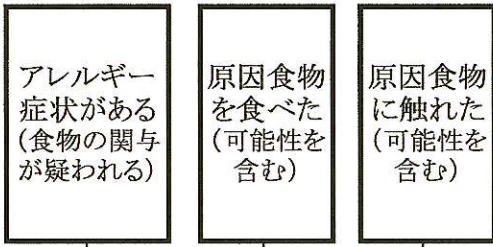 アレルギー
症状がある
(食物の関与
が疑われる)
原因食物
を食べた
(可能性を
含む)
原因食物
に触れた
(可能性を
含む)